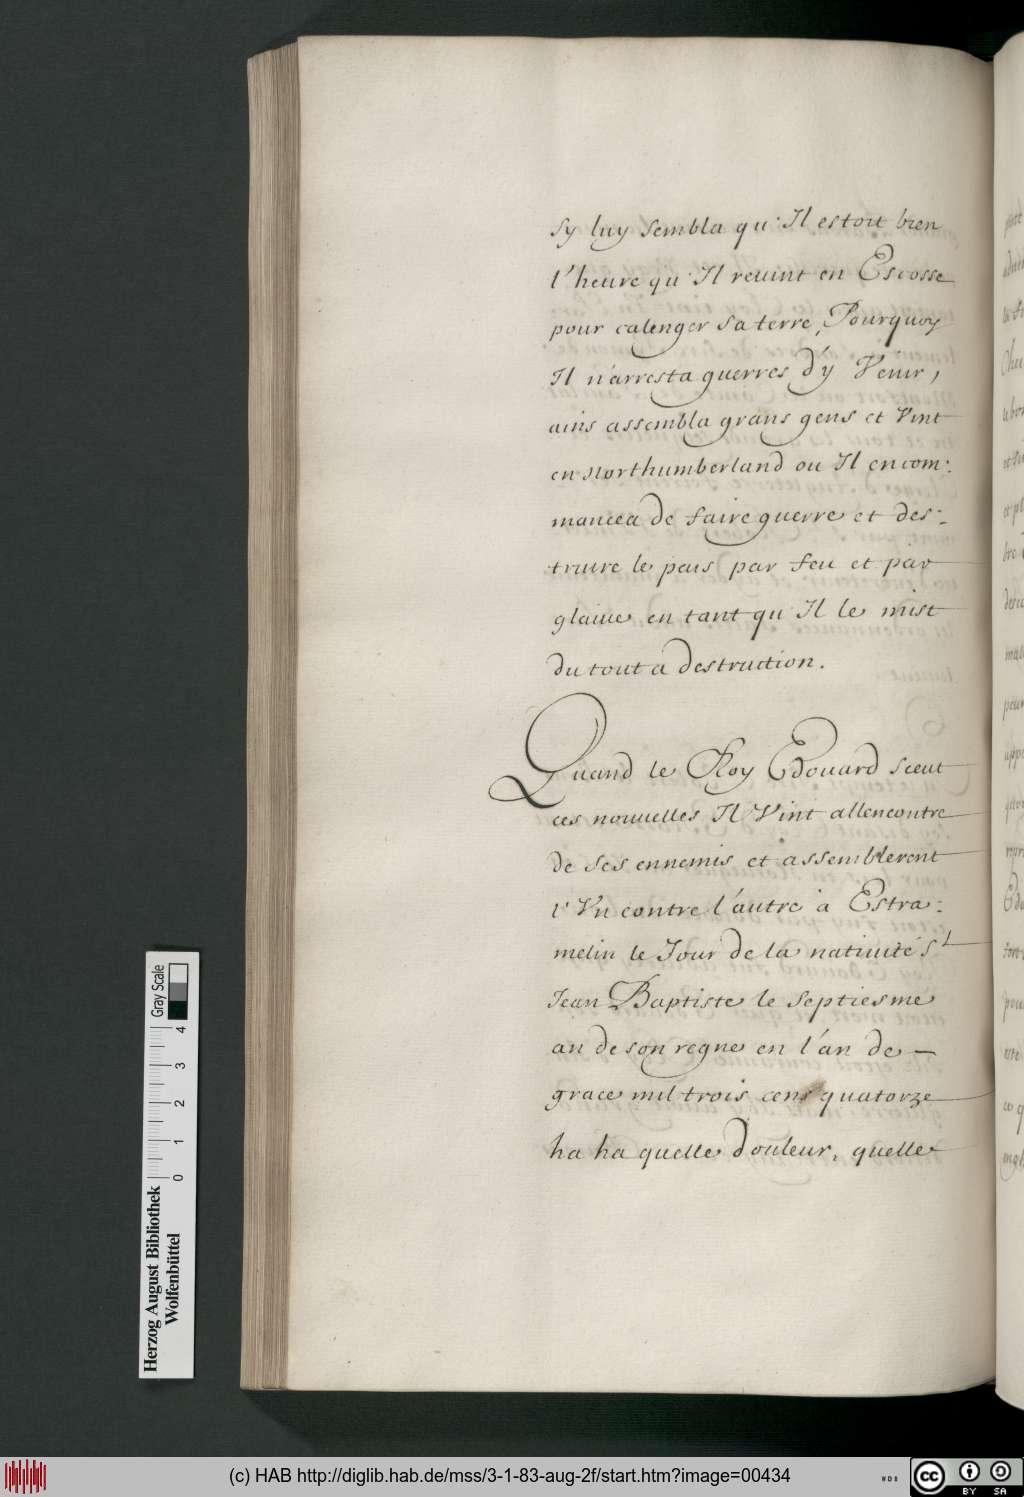 sy luy sembla qu'Il estoit bien
l'heure qu'Il revint en Escosse
pour calenger sa terre, Pourquoy
Il n'arresta guerres d'y Venir,
ains assembla grans gens et Vint
en Northumberland ou Il encom:
mancea de faire guerre et des:
truire le pais par feu et par
glaive en tant qu'Il le mist
du tout a destruction.
Quand le Roy Edouard sceut
ces nouvelles Il Vint allencontre
de ses ennemis et assemblerent
l'Vn contre l'autre à Estra:
melin le Jour de la nativité St
Jean Baptiste le septiesme
an de son regne en l'an de —
grace mil trois cens quatorze
ha ha quelle douleur, quelle
Herzog August Bibliothek
Wolfenbüttel
0 1 2 3 4
Gray Scale
(c) HAB http://diglib.hab.de/mss/3-1-83-aug-2f/start.htm?image=00434
cc BY SA